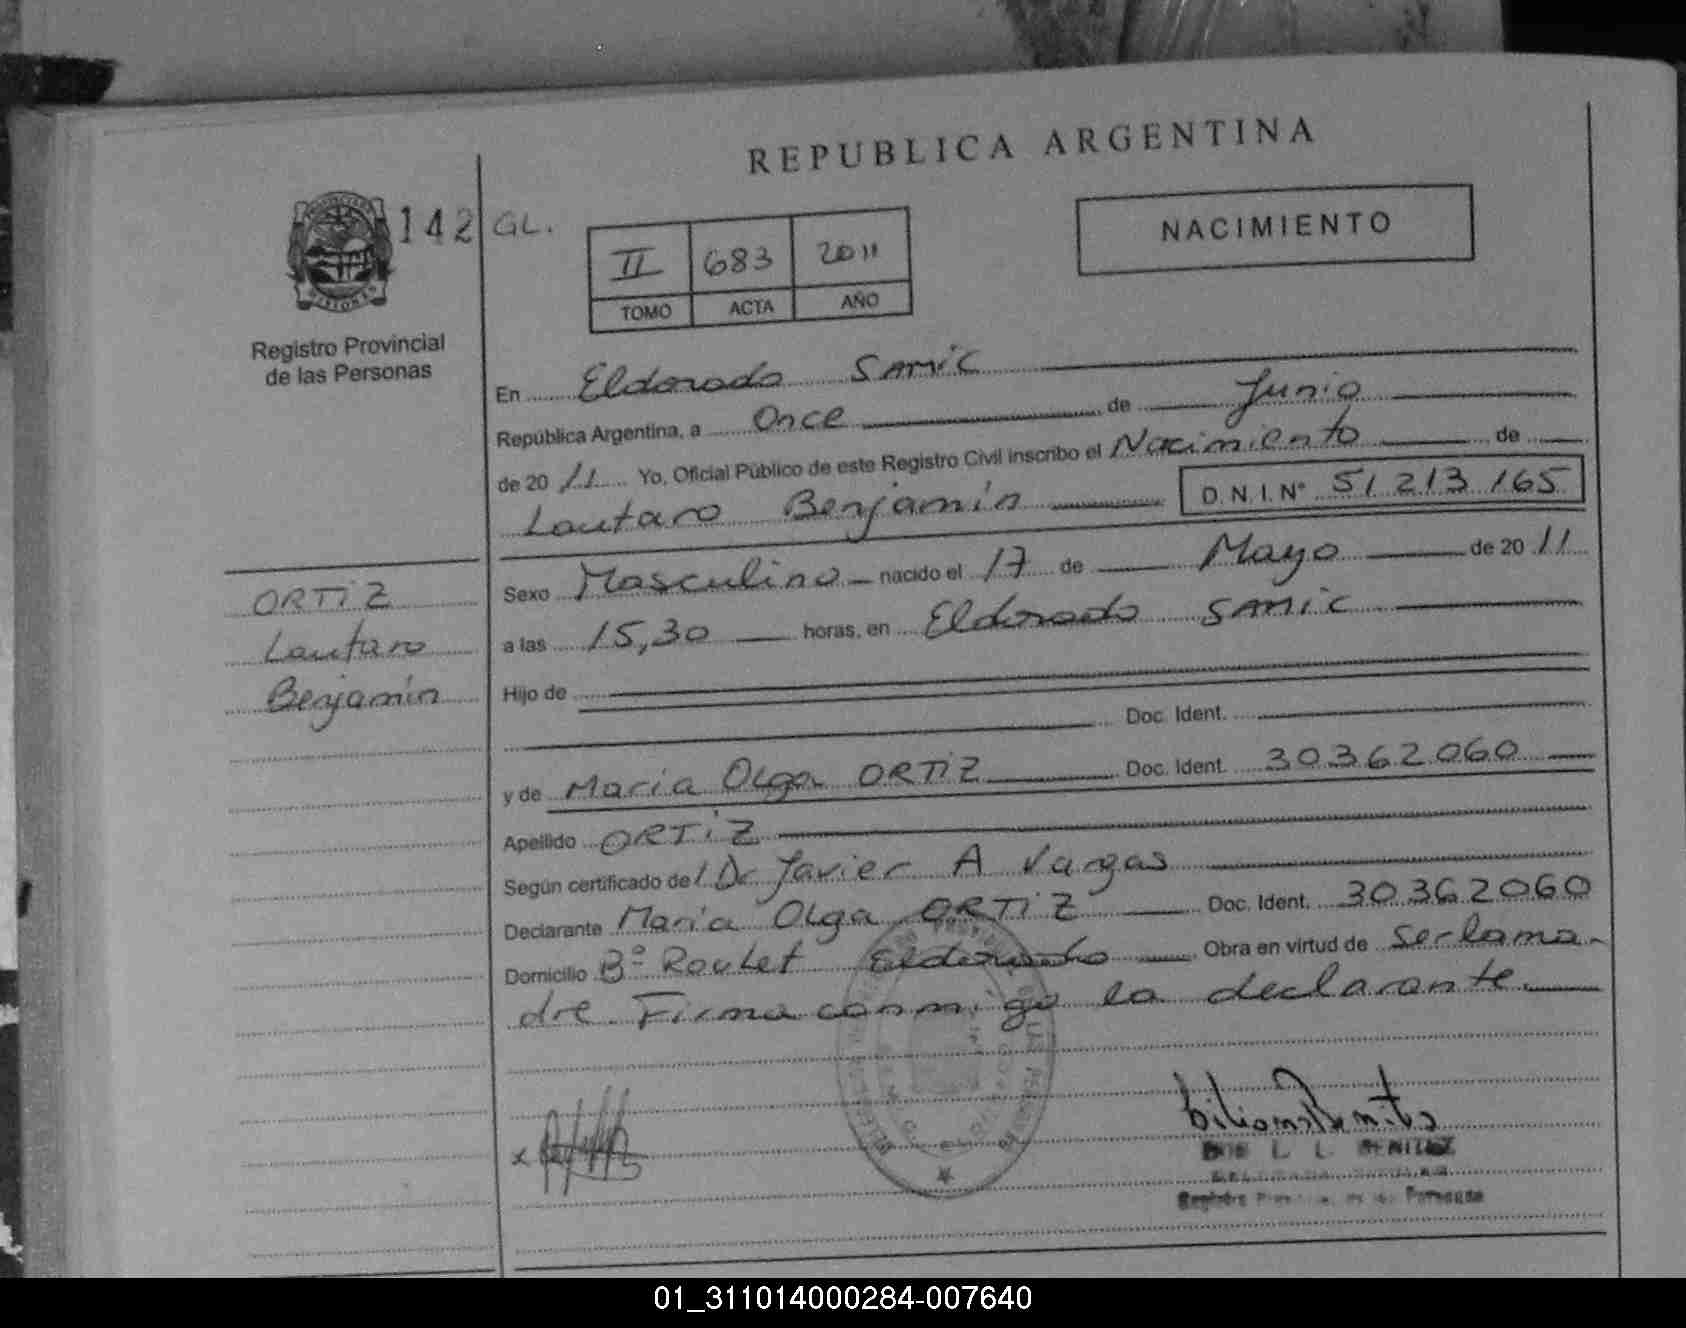 REPUBLICA ARGENTINA
142 GL.
NACIMIENTO
II 683 2011
TOMO ACTA AÑO
Registro Provincial
de las Personas
En Eldorado SAMIC
República Argentina, a Once de Junio
de 20 11 Yo, Oficial Público de este Registro Civil inscribo el Nacimiento de
Lautaro Benjamín D.N.I.Nº 51 213 165
Sexo Masculino nacido el 17 de Mayo de 20 11
a las 15,30 horas, en Eldorado SAMIC
Hijo de
Doc. Ident.
y de Maria Olga ORTIZ Doc. Ident. 30362060
Apellido ORTIZ
Según certificado del Dr Javier A Vargas
Declarante María Olga ORTIZ Doc. Ident. 30362060
Domicilio Bº Roulet Eldorado Obra en virtud de Ser la ma-
dre Firma conmigo la declarante.
ORTIZ
Lautaro
Benjamín
x
Registro
01_311014000284-007640